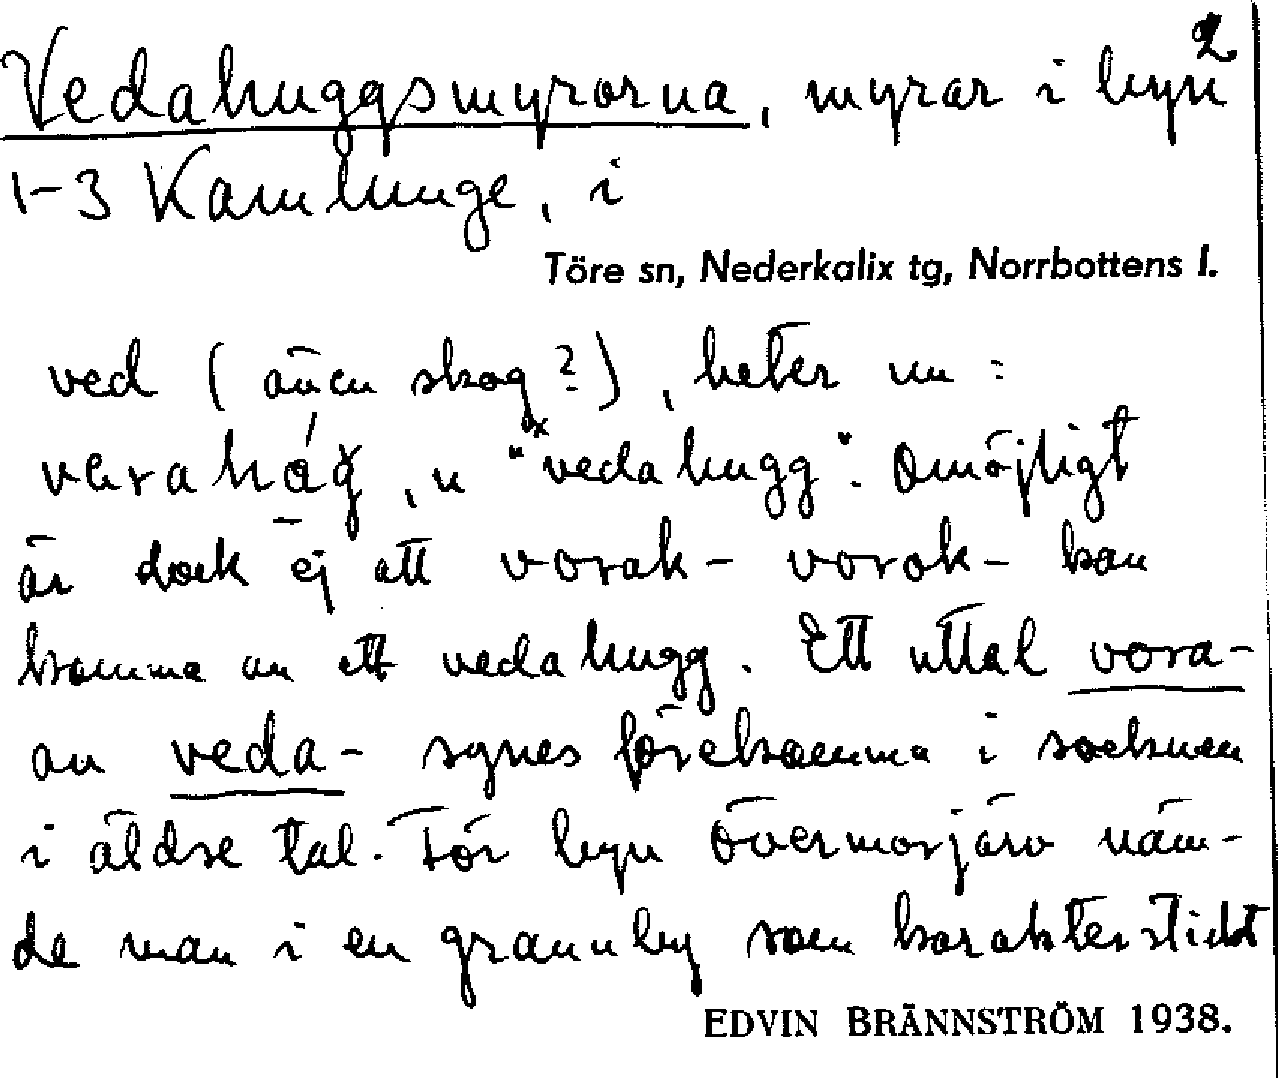 2
Vedahuggsmyrorna, myrar i byn
1-3 Kamlunge, i
Töre sn, Nederkalix tg, Norrbottens l.
ved (även skog?), heter nu:
varahǻg, n "ˣvedahugg". Omöjligt
är dock ej att vorak- vorok- kan
komma av ett vedahugg. Ett uttal vora-
av veda- synes förekomma i socknen
i äldre tal. För byn Övermorjärv näm-
de man i en grannby som karakterstickt
EDVIN BRÄNNSTRÖM 1938.